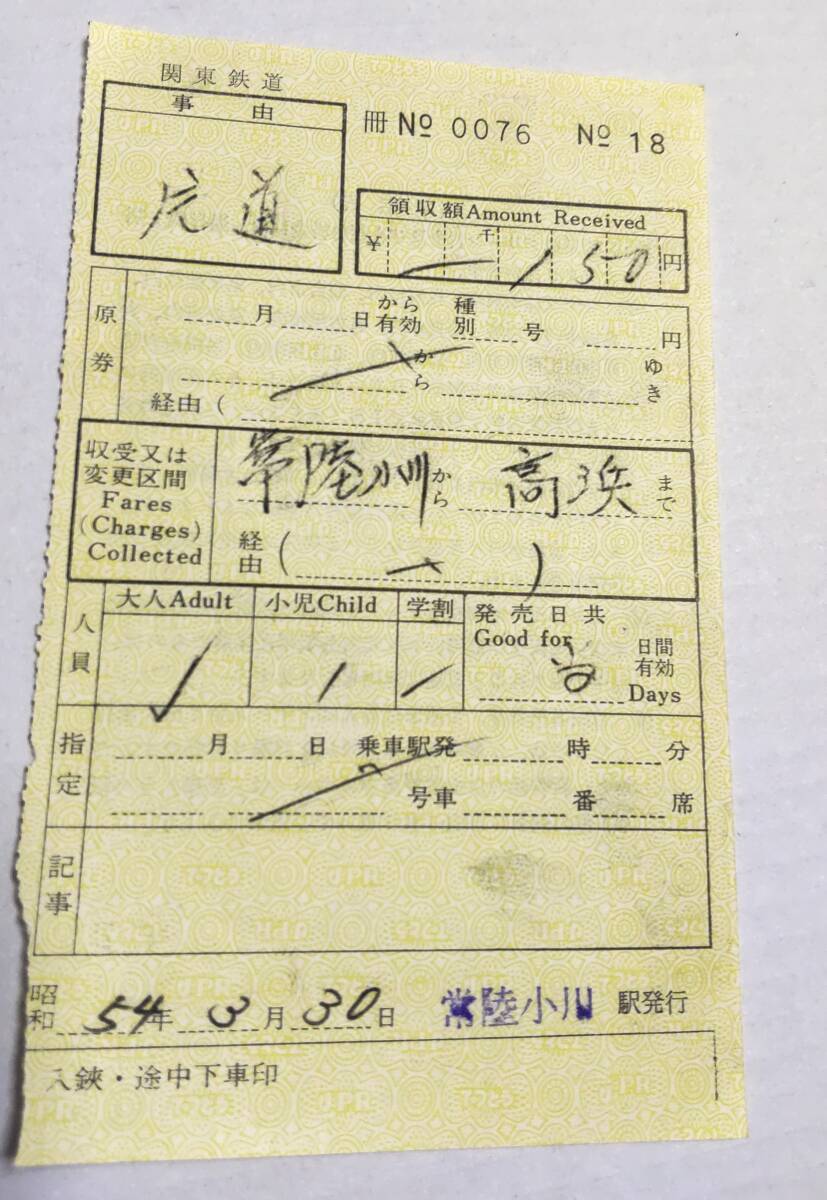 関東鉄道
事由
冊 No 0076 No 18
片道
領収額Amount Received
¥ 千 150円
原券
月 日から有効 種別 号 円
から ゆき
経由(
収受又は変更区間
Fares
(Charges)
Collected
常陸小川から 高浜まで
経由( )
人員
大人Adult 小児Child 学割 発売日共
Good for 日間有効
1 当 Days
指定
月 日 乗車駅発 時 分
号車 番 席
記事
昭和54年3月30日 常陸小川 駅発行
入鋏・途中下車印